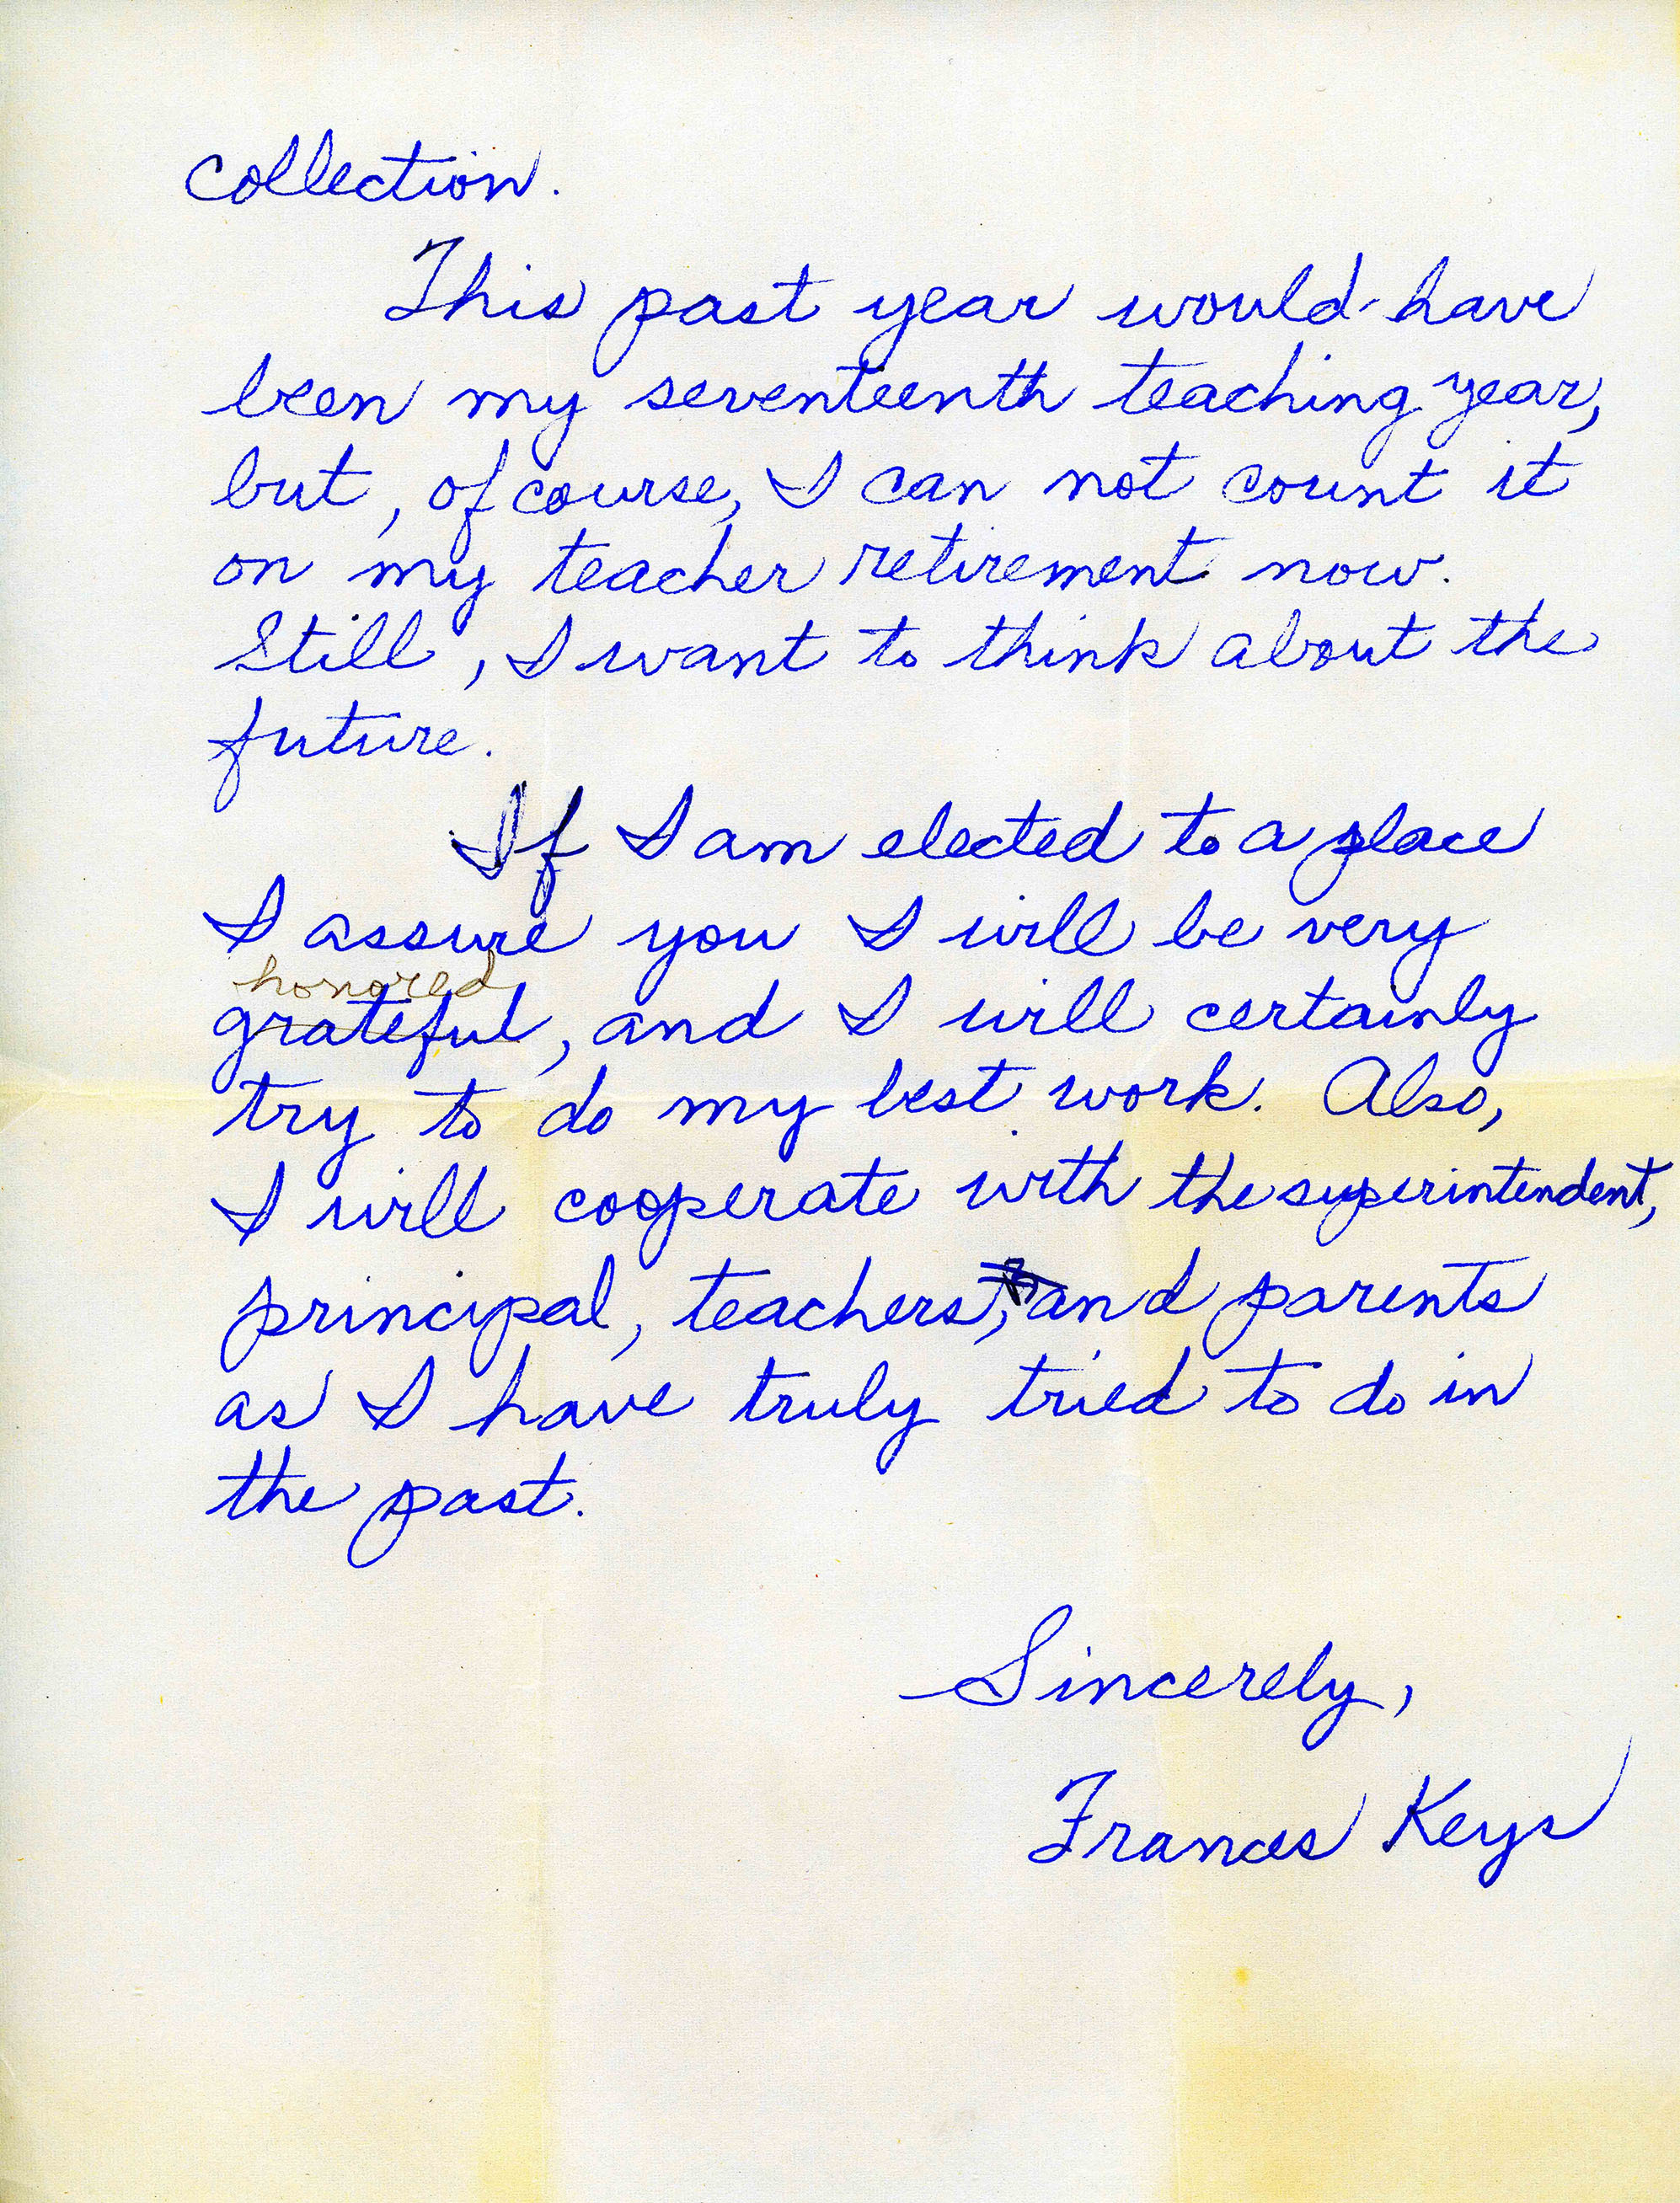 collection.
This past year would have
been my seventeenth teaching year,
but, of course, I can not count it
on my teacher retirement now.
Still, I want to think about the
future.
If I am elected to a place
I assure you I will be very
honored
grateful, and I will certainly
try to do my best work. Also,
I will cooperate with the superintendent,
principal, teachers, and parents
as I have truly tried to do in
the past.
Sincerely,
Frances Keys